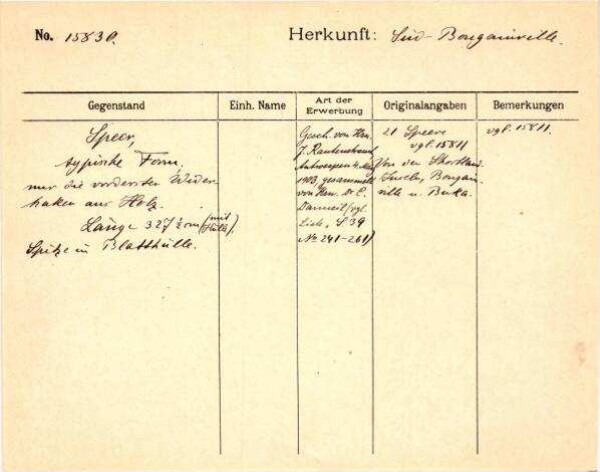 No. 15830.
Herkunft: Süd-Bougainville.
Gegenstand
Speer,
typische Form.
nur die vordersten Wider
haken aus Holz.
Länge 327½ cm (mit Hülle).
Spitze in Blatthülle.
Einh. Name
Art der Erwerbung
Gesch. von Hrn.
J. Rautenstrauch
Antwerpen 4. Mai
1903, gesammelt
von Hrn. Dr. E.
(vgl.
Liste, S 39
No 241-261)
Originalangaben
21 Speere
vgl. 15811
Von den Shortland
Inseln, Bougain-
ville u. Buka.
Bemerkungen
vgl. 15811.